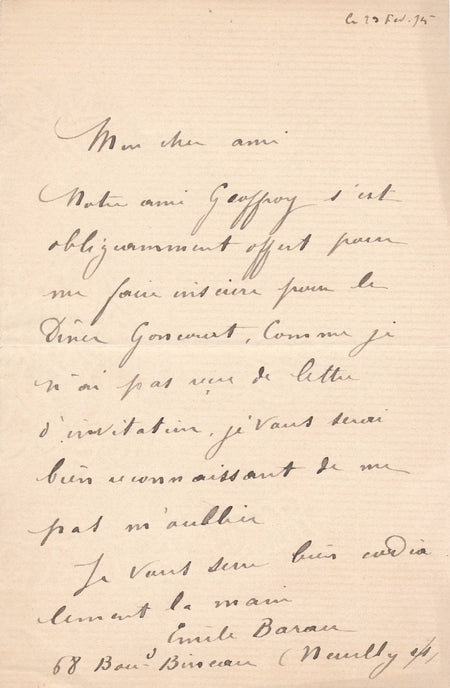 le 23 Fev. 95
Mon cher ami
Notre ami Geoffroy s'est
obligeamment offert pour
me faire inscrire pour le
Diner Goncourt, Comme je
n'ai pas reçu de lettre
d'invitation, je vous serai
bien reconnaissant de ne
pas m'oublier
Je vous serre bien cordia
lement la main
Emile Barau
68 Boulᵈ Bineau (Neuilly s/s)